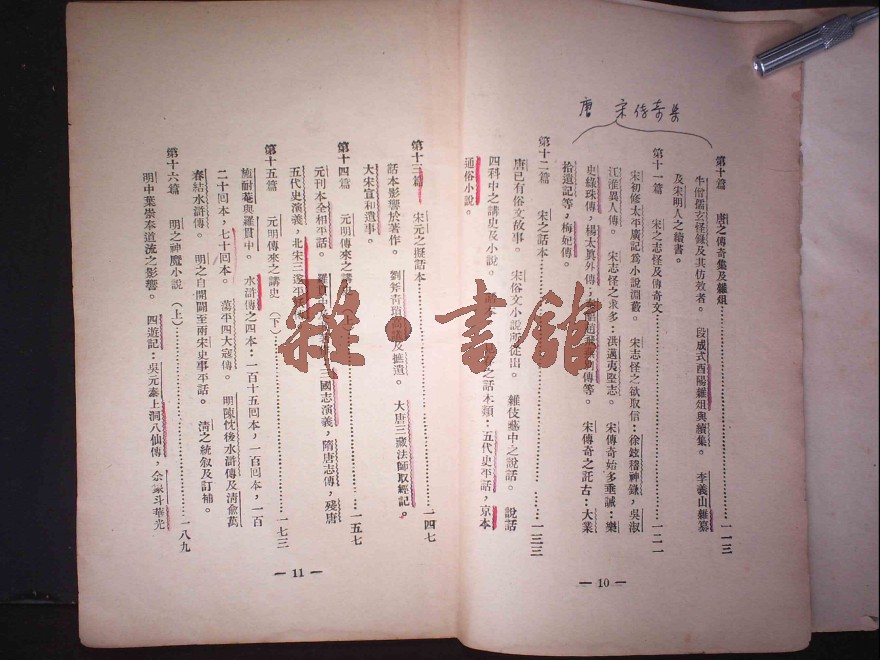 唐 宋传奇集
第十篇 唐之傳奇集及雜俎……一一三
牛僧孺玄怪錄及其仿效者。 段成式酉陽雜俎與續集。 李義山雜纂
及宋明人之續書。
第十一篇 宋之志怪及傳奇文……一二一
宋初修太平廣記爲小說淵藪。 宋志怪之欲取信：徐鉉稽神錄，吳淑
江淮異人傳。 宋志怪之求多：洪邁夷堅志。 宋傳奇始多垂誡：樂
史綠珠傳，楊太眞外傳 傳等。 宋傳奇之託古：大業
拾遺記等，梅妃傳。
第十二篇 宋之話本……一三三
唐已有俗文故事。 宋俗文小說所從出。 雜伎藝中之說話。 說話
四科中之講史及小說。 之話本類：五代史平話，京本
通俗小說。
— 10 —
第十三篇 宋元之擬話本……一四七
話本影響於著作。 劉斧青瑣高議及摭遺。 大唐三藏法師取經記。
大宋宣和遺事。
第十四篇 元明傳來之講史……一五七
元刊本全相平話。 羅貫中 三國志演義，隋唐志傳，殘唐
五代史演義，北宋三遂平妖傳
第十五篇 元明傳來之講史（下）……一七三
施耐菴與羅貫中。 水滸傳之四本：一百十五回本，一百回本，一百
二十回本，七十回本。 蕩平四大寇傳。 明陳忱後水滸傳及淸俞萬
春結水滸傳。 明之自開闢至兩宋史事平話。 淸之統叙及訂補。
第十六篇 明之神魔小說（上）……一八九
明中葉崇奉道流之影響。 四遊記：吳元泰上洞八仙傳，余象斗華光
— 11 —
雜·書館